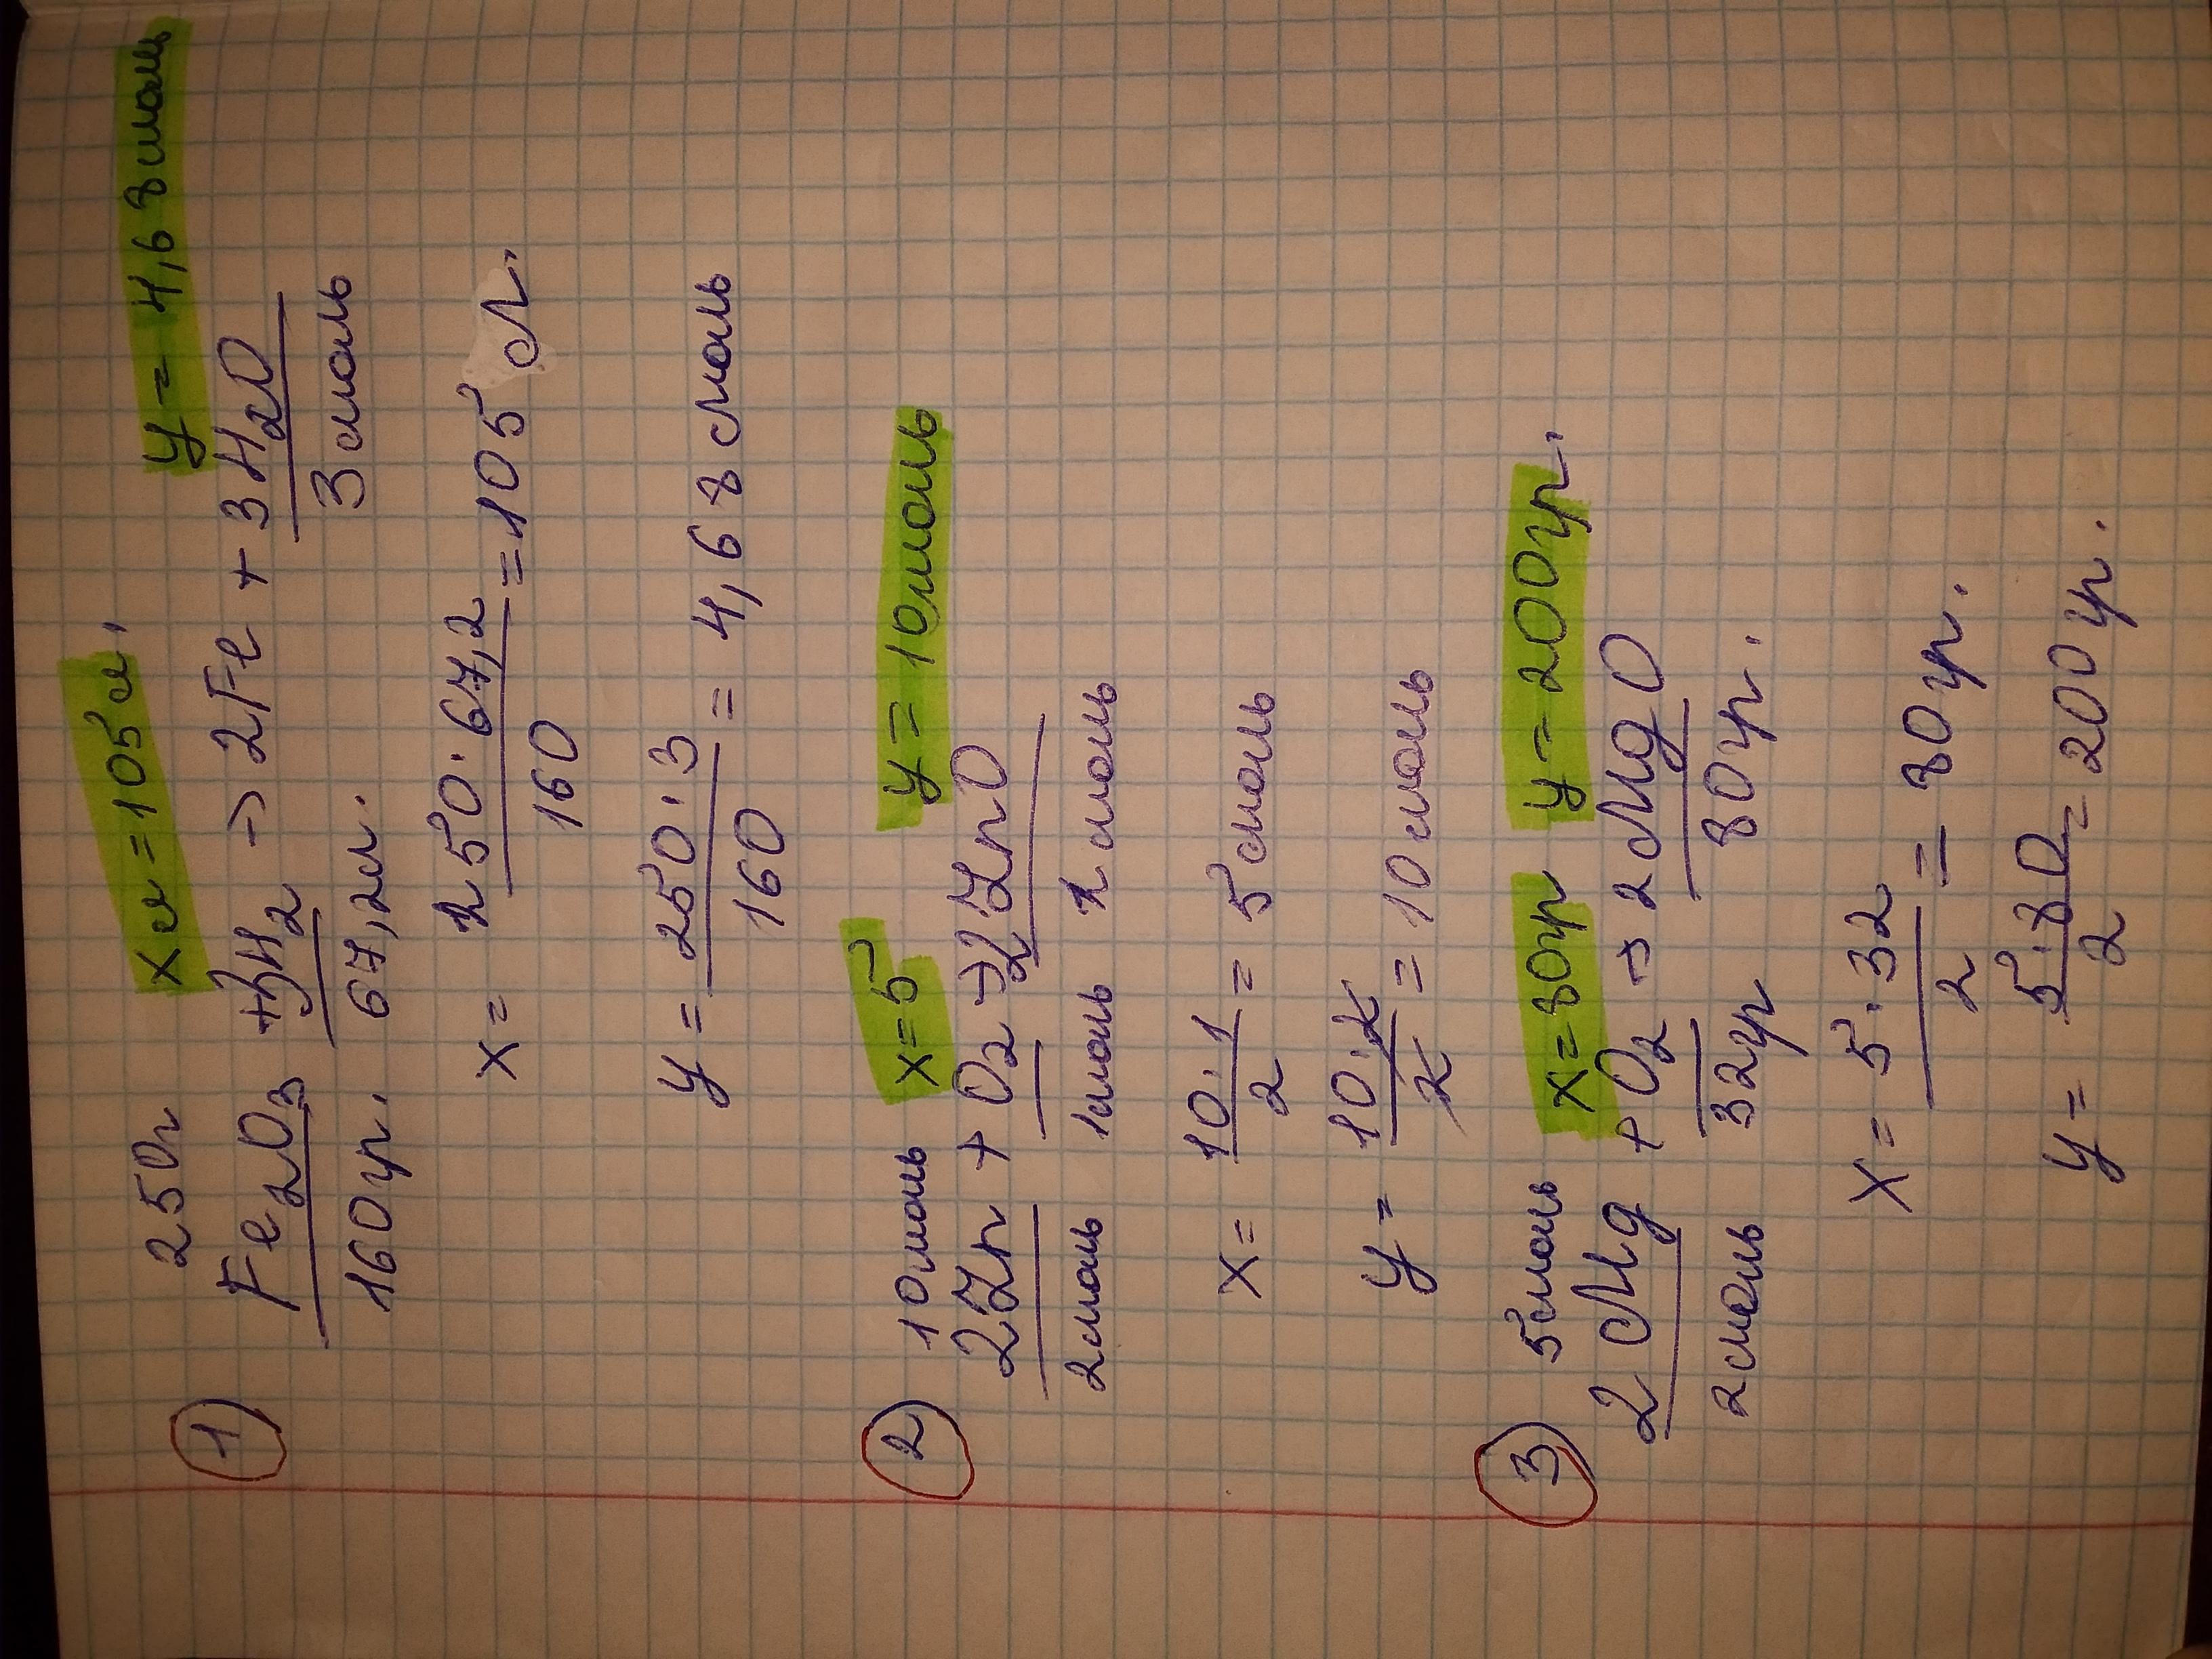 1
250г x л = 105 л. y = 4,68 моль
Fe2O3 + 3H2 → 2Fe + 3H2O
160 гр. 67,2 л. 3 моль
x = 250 · 67,2 / 160 = 105 л.
y = 250 · 3 / 160 = 4,68 моль
2
10 моль x = 5 y = 10 моль
2Zn + O2 → 2ZnO
2 моль 1 моль 2 моль
x = 10 · 1 / 2 = 5 моль
y = 10 · 2 / 2 = 10 моль
3
5 моль x = 80 гр y = 200 гр.
2Mg + O2 → 2MgO
2 моль 32 гр 80 гр.
x = 5 · 32 / 2 = 80 гр.
y = 5 · 80 / 2 = 200 гр.